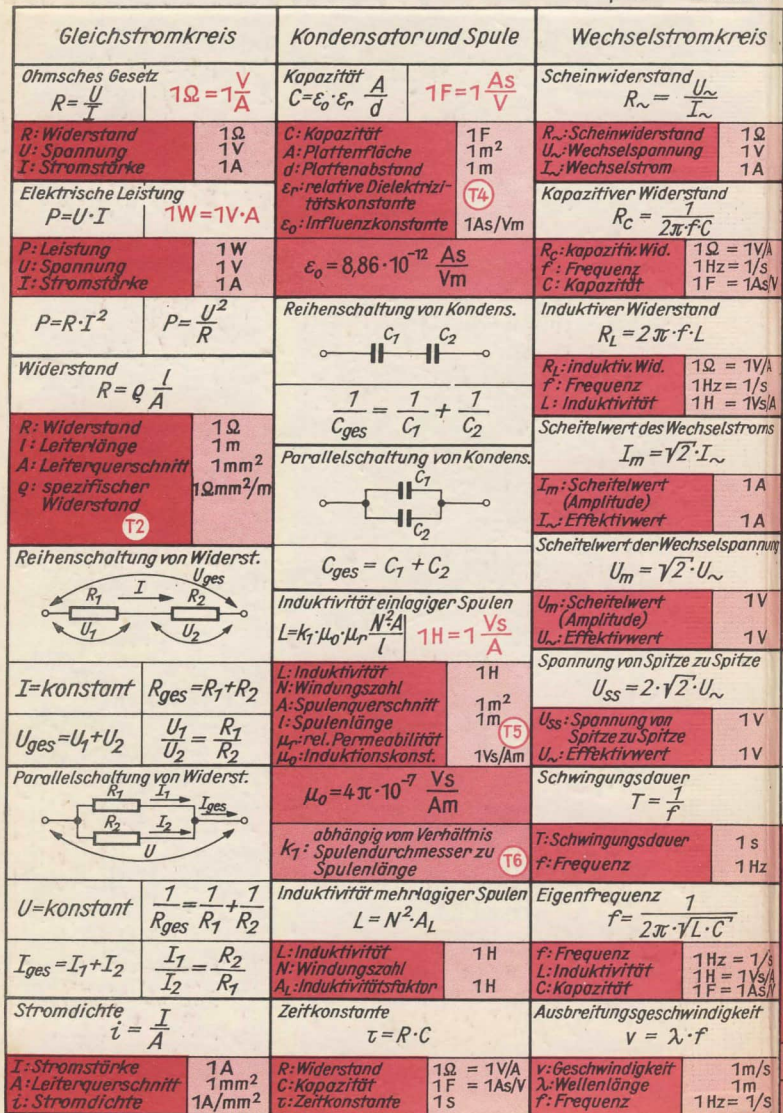 Gleichstromkreis
Ohmsches Gesetz
R = U/I
1Ω = 1 V/A
R: Widerstand 1Ω
U: Spannung 1V
I: Stromstärke 1A
Elektrische Leistung
P=U·I 1W=1V·A
P: Leistung 1W
U: Spannung 1V
I: Stromstärke 1A
P=R·I² P=U²/R
Widerstand
R = ϱ l/A
R: Widerstand 1Ω
l: Leiterlänge 1m
A: Leiterquerschnitt 1mm²
ϱ: spezifischer 1Ωmm²/m
Widerstand
T2
Reihenschaltung von Widerst.
Uges
R1 I R2
U1 U2
I=konstant Rges=R1+R2
Uges=U1+U2 U1/U2 = R1/R2
Parallelschaltung von Widerst.
R1 I1
Iges
R2 I2
U
U=konstant 1/Rges = 1/R1 + 1/R2
Iges=I1+I2 I1/I2 = R2/R1
Stromdichte
i = I/A
I: Stromstärke 1A
A: Leiterquerschnitt 1mm²
i: Stromdichte 1A/mm²
Kondensator und Spule
Kapazität
C=ε0·εr A/d 1F=1 As/V
C: Kapazität 1F
A: Plattenfläche 1m²
d: Plattenabstand 1m
εr: relative Dielektrizi-
tätskonstante T4
ε0: Influenzkonstante 1As/Vm
ε0 = 8,86·10⁻¹² As/Vm
Reihenschaltung von Kondens.
C1 C2
1/Cges = 1/C1 + 1/C2
Parallelschaltung von Kondens.
C1
C2
Cges = C1 + C2
Induktivität einlagiger Spulen
L=k1·μ0·μr N²·A/l 1H=1 Vs/A
L: Induktivität 1H
N: Windungszahl
A: Spulenquerschnitt 1m²
l: Spulenlänge 1m
μr: rel. Permeabilität T5
μ0: Induktionskonst. 1Vs/Am
μ0=4π·10⁻⁷ Vs/Am
abhängig vom Verhältnis
k1: Spulendurchmesser zu T6
Spulenlänge
Induktivität mehrlagiger Spulen
L = N²·AL
L: Induktivität 1H
N: Windungszahl
AL: Induktivitätsfaktor 1H
Zeitkonstante
τ=R·C
R: Widerstand 1Ω = 1V/A
C: Kapazität 1F = 1As/V
τ: Zeitkonstante 1s
Wechselstromkreis
Scheinwiderstand
R~ = U~/I~
R~: Scheinwiderstand 1Ω
U~: Wechselspannung 1V
I~: Wechselstrom 1A
Kapazitiver Widerstand
RC = 1/2π·f·C
RC: kapazitiv. Wid. 1Ω = 1V/A
f: Frequenz 1Hz = 1/s
C: Kapazität 1F = 1As/V
Induktiver Widerstand
RL = 2π·f·L
RL: induktiv. Wid. 1Ω = 1V/A
f: Frequenz 1Hz = 1/s
L: Induktivität 1H = 1Vs/A
Scheitelwert des Wechselstroms
Im = √2·I~
Im: Scheitelwert 1A
(Amplitude)
I~: Effektivwert 1A
Scheitelwert der Wechselspannung
Um = √2·U~
Um: Scheitelwert 1V
(Amplitude)
U~: Effektivwert 1V
Spannung von Spitze zu Spitze
USS = 2·√2·U~
USS: Spannung von 1V
Spitze zu Spitze
U~: Effektivwert 1V
Schwingungsdauer
T = 1/f
T: Schwingungsdauer 1s
f: Frequenz 1Hz
Eigenfrequenz
f = 1/2π·√L·C
f: Frequenz 1Hz = 1/s
L: Induktivität 1H = 1Vs/A
C: Kapazität 1F = 1As/V
Ausbreitungsgeschwindigkeit
v = λ·f
v: Geschwindigkeit 1m/s
λ: Wellenlänge 1m
f: Frequenz 1Hz = 1/s